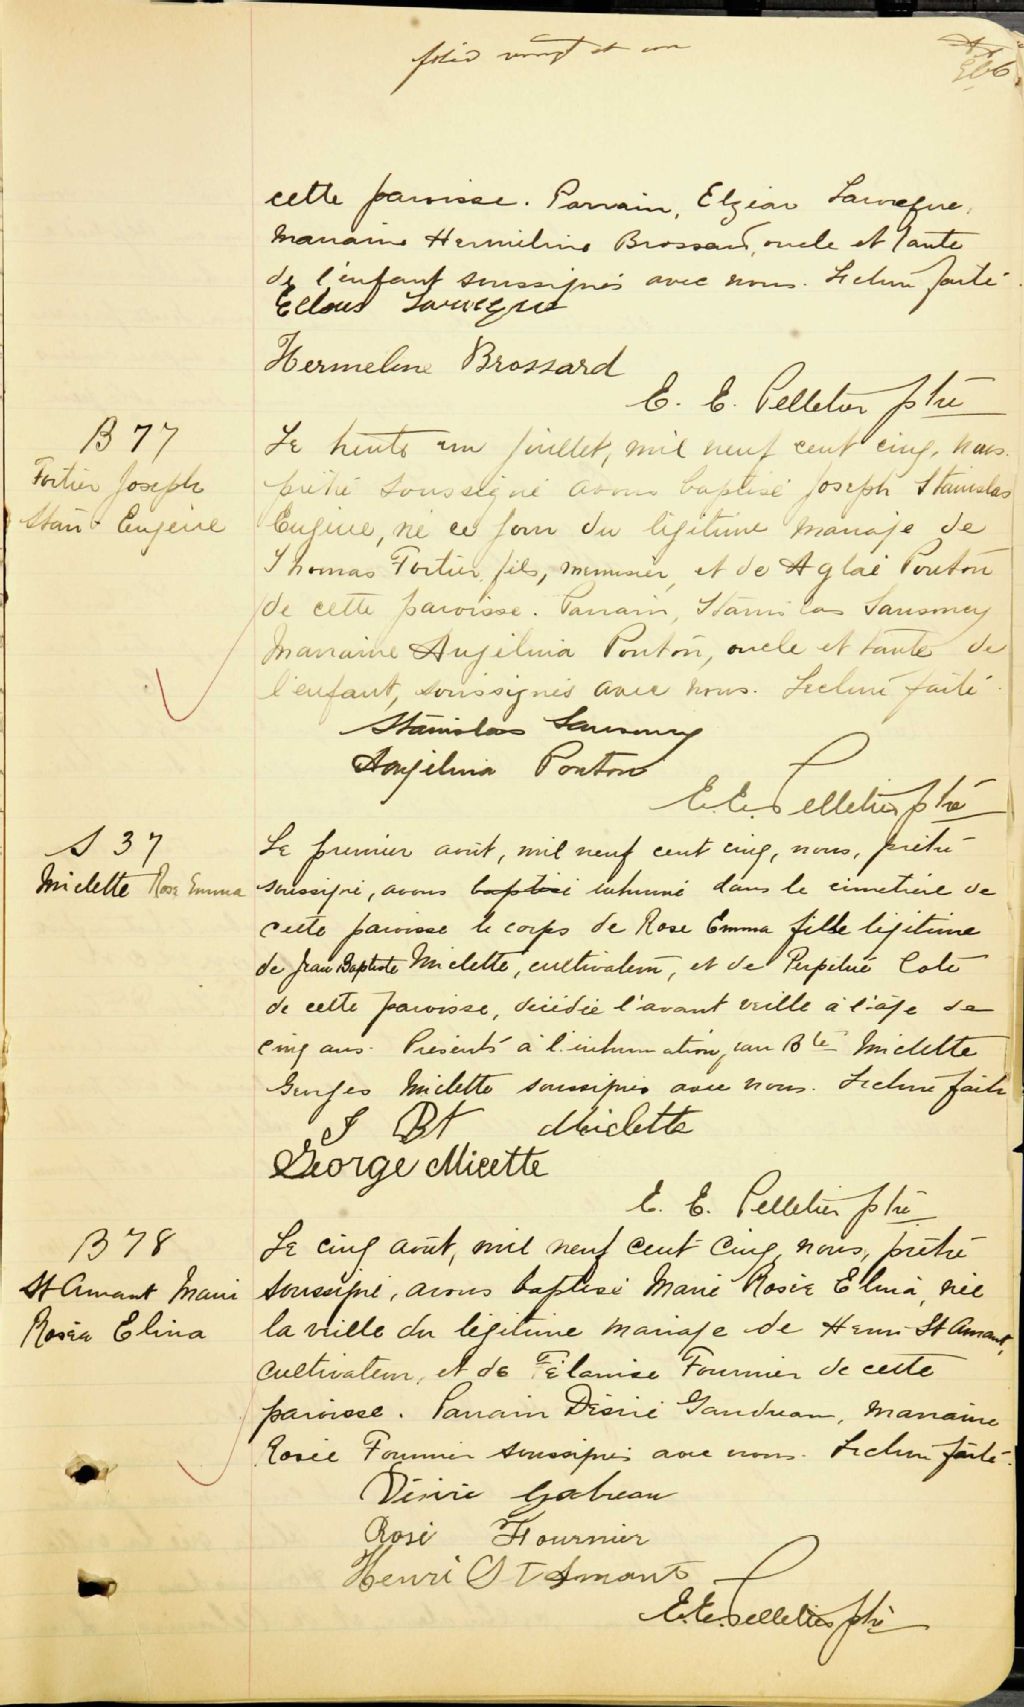 folio vingt et un
cette paroisse. Parrain, Elzéar
Marraine Hermeline Brossard, oncle et tante
de l'enfant soussignés avec nous. Lecture faite.
Hermeline Brossard
E. E. Pelletier ptre
B 77
Fortier Joseph
Stan. Eugène
Le trente un juillet, mil neuf cent cinq, nous
prêtre soussigné avons baptisé Joseph Stanislas
Eugène, né ce jour du légitime mariage de
Thomas Fortier fils, menuisier, et de Aglaé Ponton
de cette paroisse. Parrain, Stanislas Sansoucy
Marraine Angélina Ponton, oncle et tante de
l'enfant, soussignés avec nous. Lecture faite.
Stanislas Sansoucy
Angélina Ponton
E. E. Pelletier ptre
S 37
Miclette Rose Emma
Le premier août, mil neuf cent cinq, nous, prêtre
soussigné, avons baptisé inhumé dans le cimetière de
cette paroisse le corps de Rose Emma fille légitime
de Jean Baptiste Miclette, cultivateur, et de Perpétue Coté
de cette paroisse, décédée l'avant veille à l'âge de
cinq ans. Présents à l'inhumation, Bte Miclette
Georges Miclette soussignés avec nous. Lecture faite
J Bt Miclette
George Micette
E. E. Pelletier ptre
B 78
St Amant Marie
Rosée Elina
Le cinq août, mil neuf cent cinq, nous, prêtre
soussigné, avons baptisé Marie Rosée Elina, née
la veille du légitime mariage de Henri St Amant,
cultivateur, et de Fournier de cette
paroisse. Parrain Désiré Gaudreau, marraine
Rosée Fournier soussignés avec nous. Lecture faite.
Désiré Gobreau
Rose Fournier
Henri St Amant
E. E. Pelletier ptre